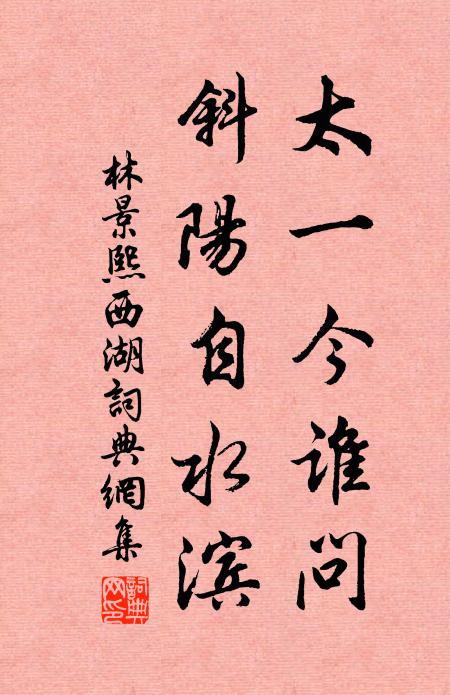 太一今谁问
斜陽自水滨
林景熙西湖詞典網集
詞典网印